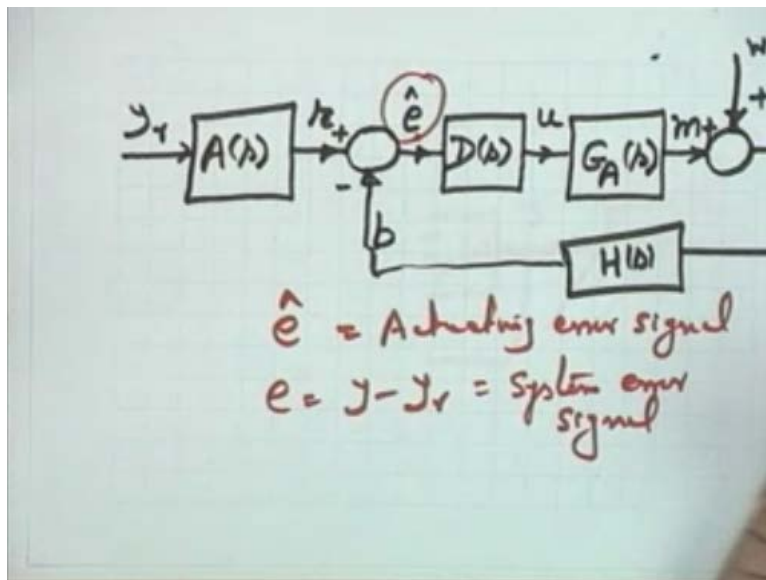 w
y_r A(s) r + ê D(s) u G_A(s) m + +
-
b H(s)
ê = Actuating error signal
e = y - y_r = System error
signal